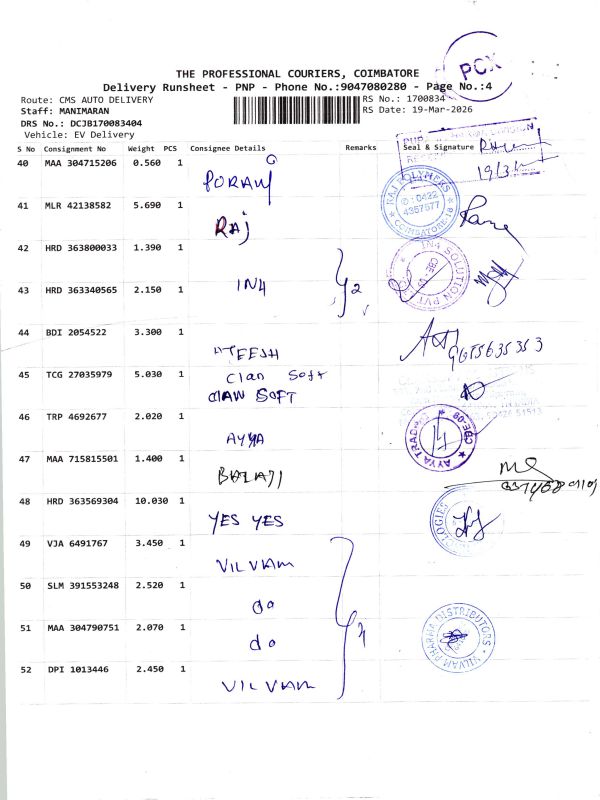 PCX
THE PROFESSIONAL COURIERS, COIMBATORE
Delivery Runsheet - PNP - Phone No.:9047080280 - Page No.:4
Route: CMS AUTO DELIVERY
RS No.: 1700834
Staff: MANIMARAN
RS Date: 19-Mar-2026
DRS No.: DCJB170083404
Vehicle: EV Delivery
S No Consignment No Weight PCS Consignee Details Remarks Seal & Signature
40 MAA 304715206 0.560 1
19/3/
RAJ POLYMERS
: 0422
4357577
COIMBATORE-18
41 MLR 42138582 5.690 1
RAJ
42 HRD 363800033 1.390 1
IN4 2
IN4 SOLUTION PVT
43 HRD 363340565 2.150 1
44 BDI 2054522 3.300 1
ATEESH
45 TCG 27035979 5.030 1
Clan Soft
CLAW SOFT
46 TRP 4692677 2.020 1
AYYA
AYYA TRADERS CBE-09
47 MAA 715815501 1.400 1
BALAJI
48 HRD 363569304 10.030 1
YES YES
49 VJA 6491767 3.450 1
VILVAM
50 SLM 391553248 2.520 1
do
51 MAA 304790751 2.070 1
do 4
VILVAM PHARMA DISTRIBUTORS
52 DPI 1013446 2.450 1
VILVAM